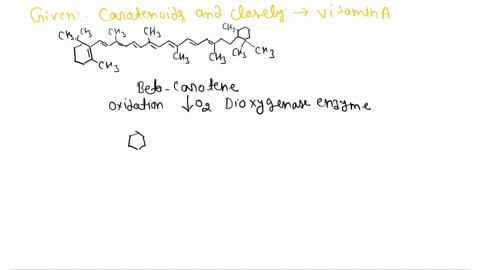 Given:- Carotenoids and closely → vitamin A
CH3 CH3 CH3 CH3 CH3
CH3 CH3 CH3 CH3 CH3
Beta-Carotene
Oxidation ↓O2 Dioxygenase enzyme